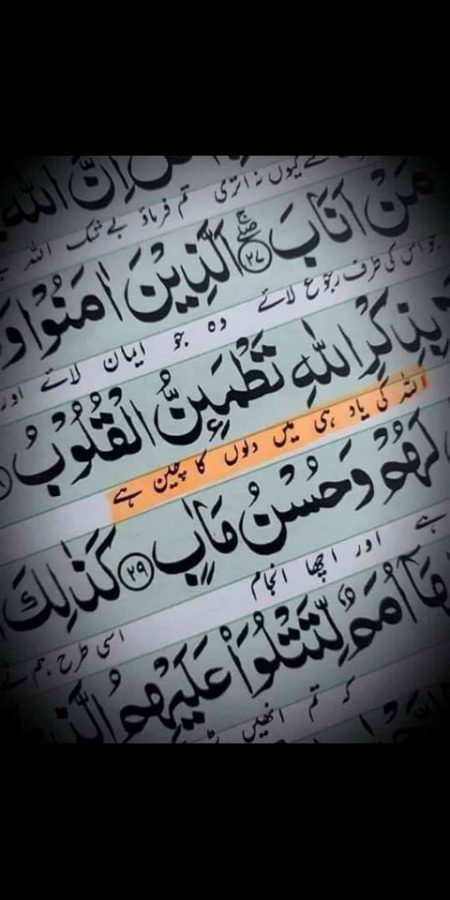 اِنَّ اللّٰهَ
کیوں نہ اتری تم فرماؤ بے شک اللہ
مَنْ اَنَابَ ﴿۲۷﴾ اَلَّذِيْنَ اٰمَنُوْا وَ
جو اس کی طرف رجوع لائے وہ جو ایمان لائے اور
بِذِكْرِ اللّٰهِ تَطْمَئِنُّ الْقُلُوْبُ
اللہ کی یاد ہی میں دلوں کا چین ہے
لَهُمْ وَحُسْنُ مَاٰبٍ ﴿۲۹﴾ كَذٰلِكَ
ہے اور اچھا انجام اسی طرح ہم نے
اُمَمٌ لِّتَتْلُوَاۡ عَلَيْهِمُ الَّذِ
کہ تم انھیں